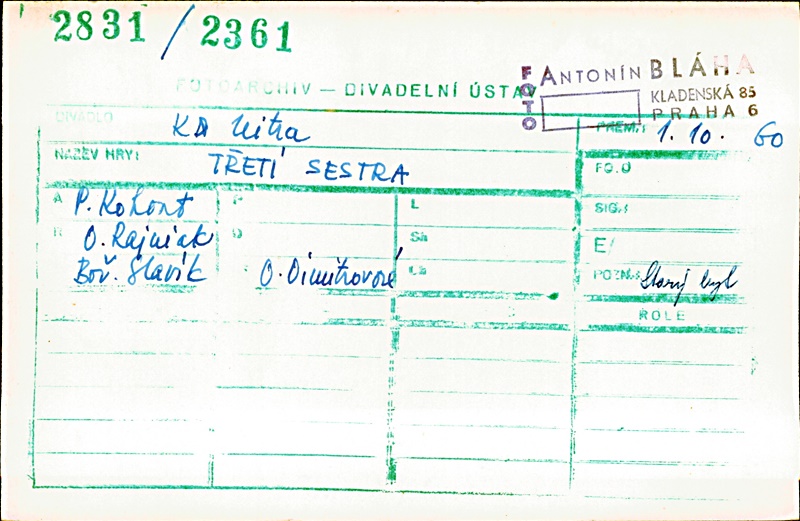 2831 / 2361
FOTO ANTONÍN BLÁHA
KLADENSKÁ 85
PRAHA 6
FOTOARCHIV — DIVADELNÍ ÚSTAV
DIVADLO KD Nitra PREM.: 1. 10. 60
NÁZEV HRY: TŘETÍ SESTRA
FO.O
A P. Kohout P L SIG.:
R O. Rajniak D Sa E/
Boř. Slavík O. Dimitrovová La POZN.: Starý
ROLE